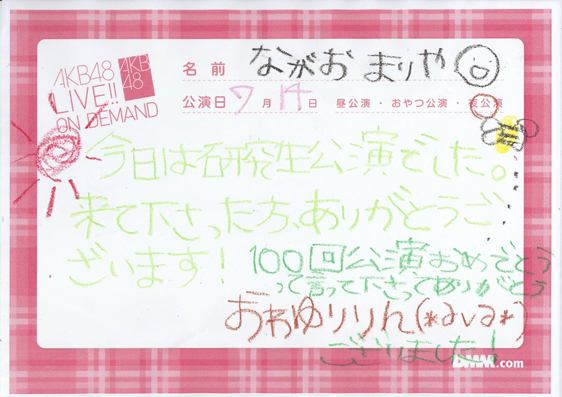 AKB48
LIVE!!
ON DEMAND
AKB
48
名前 ながお まりや
公演日 7月14日 昼公演・おやつ公演・夜公演
今日は研究生公演でした。
来て下さった方、ありがとうご
ざいます!
100回公演おめでとう
って言って下さってありがとう
おゎゆりりん(*ava*)
ございました!
DMM.com